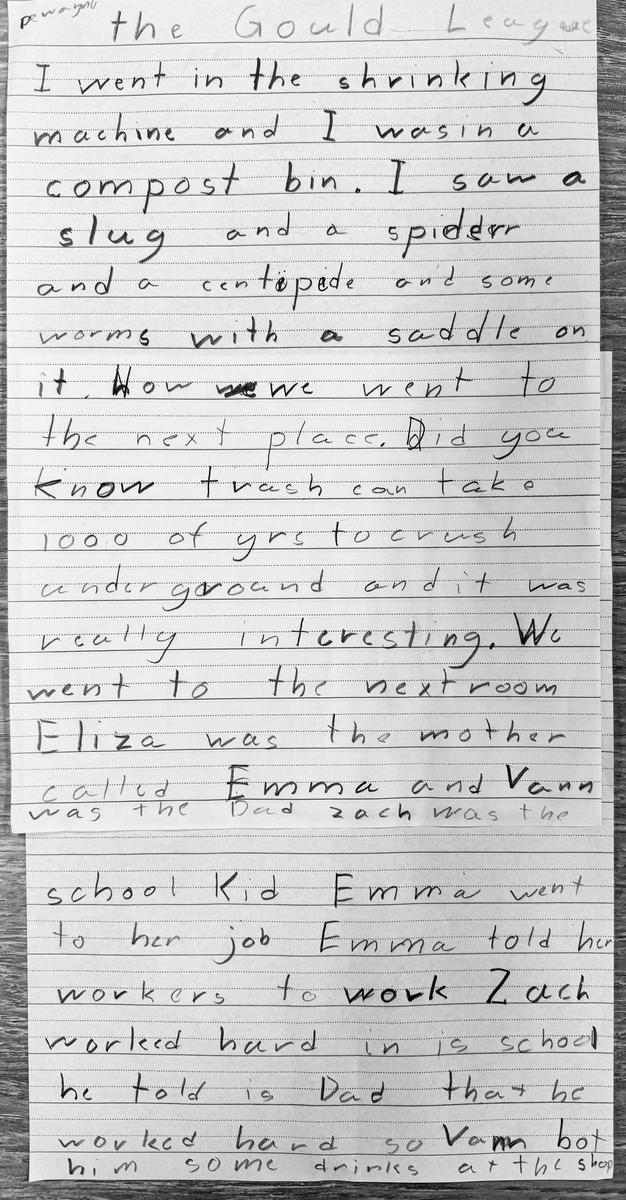 Dewayne
the Gould League
I went in the shrinking
machine and I wasin a
compost bin. I saw a
slug and a spiderr
and a centipide and some
worms with a saddle on
it. Now we went to
the next place. Did you
know trash can take
1000 of yrs to crush
undergroand and it was
really interesting. We
went to the next room
Eliza was the mother
called Emma and Vann
was the Dad zach was the
school Kid Emma went
to her job Emma told her
workers to work Zach
worked hard in is school
he told is Dad that he
worked hard so Vann bot
him some drinks at the shop